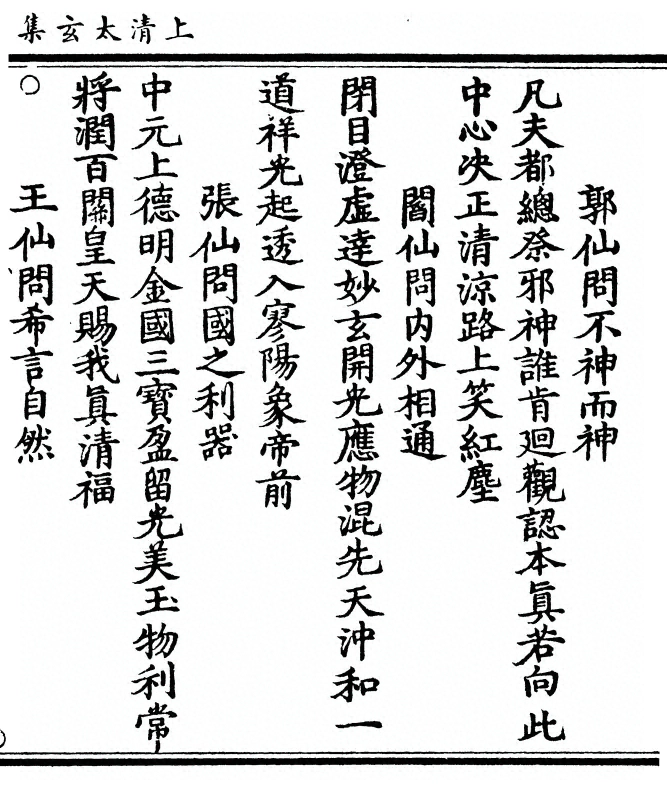 上清太玄集
郭仙問不神而神
凡夫都總祭邪神誰肯廻觀認本眞若向此
中心决正清涼路上笑紅塵
閻仙問内外相通
閉目澄虛達妙玄開光應物混先天沖和一
道祥光起透入寥陽象帝前
張仙問國之利器
中元上德明金國三寶盈留光美玉物利常
將潤百關皇天賜我眞清福
王仙問希言自然